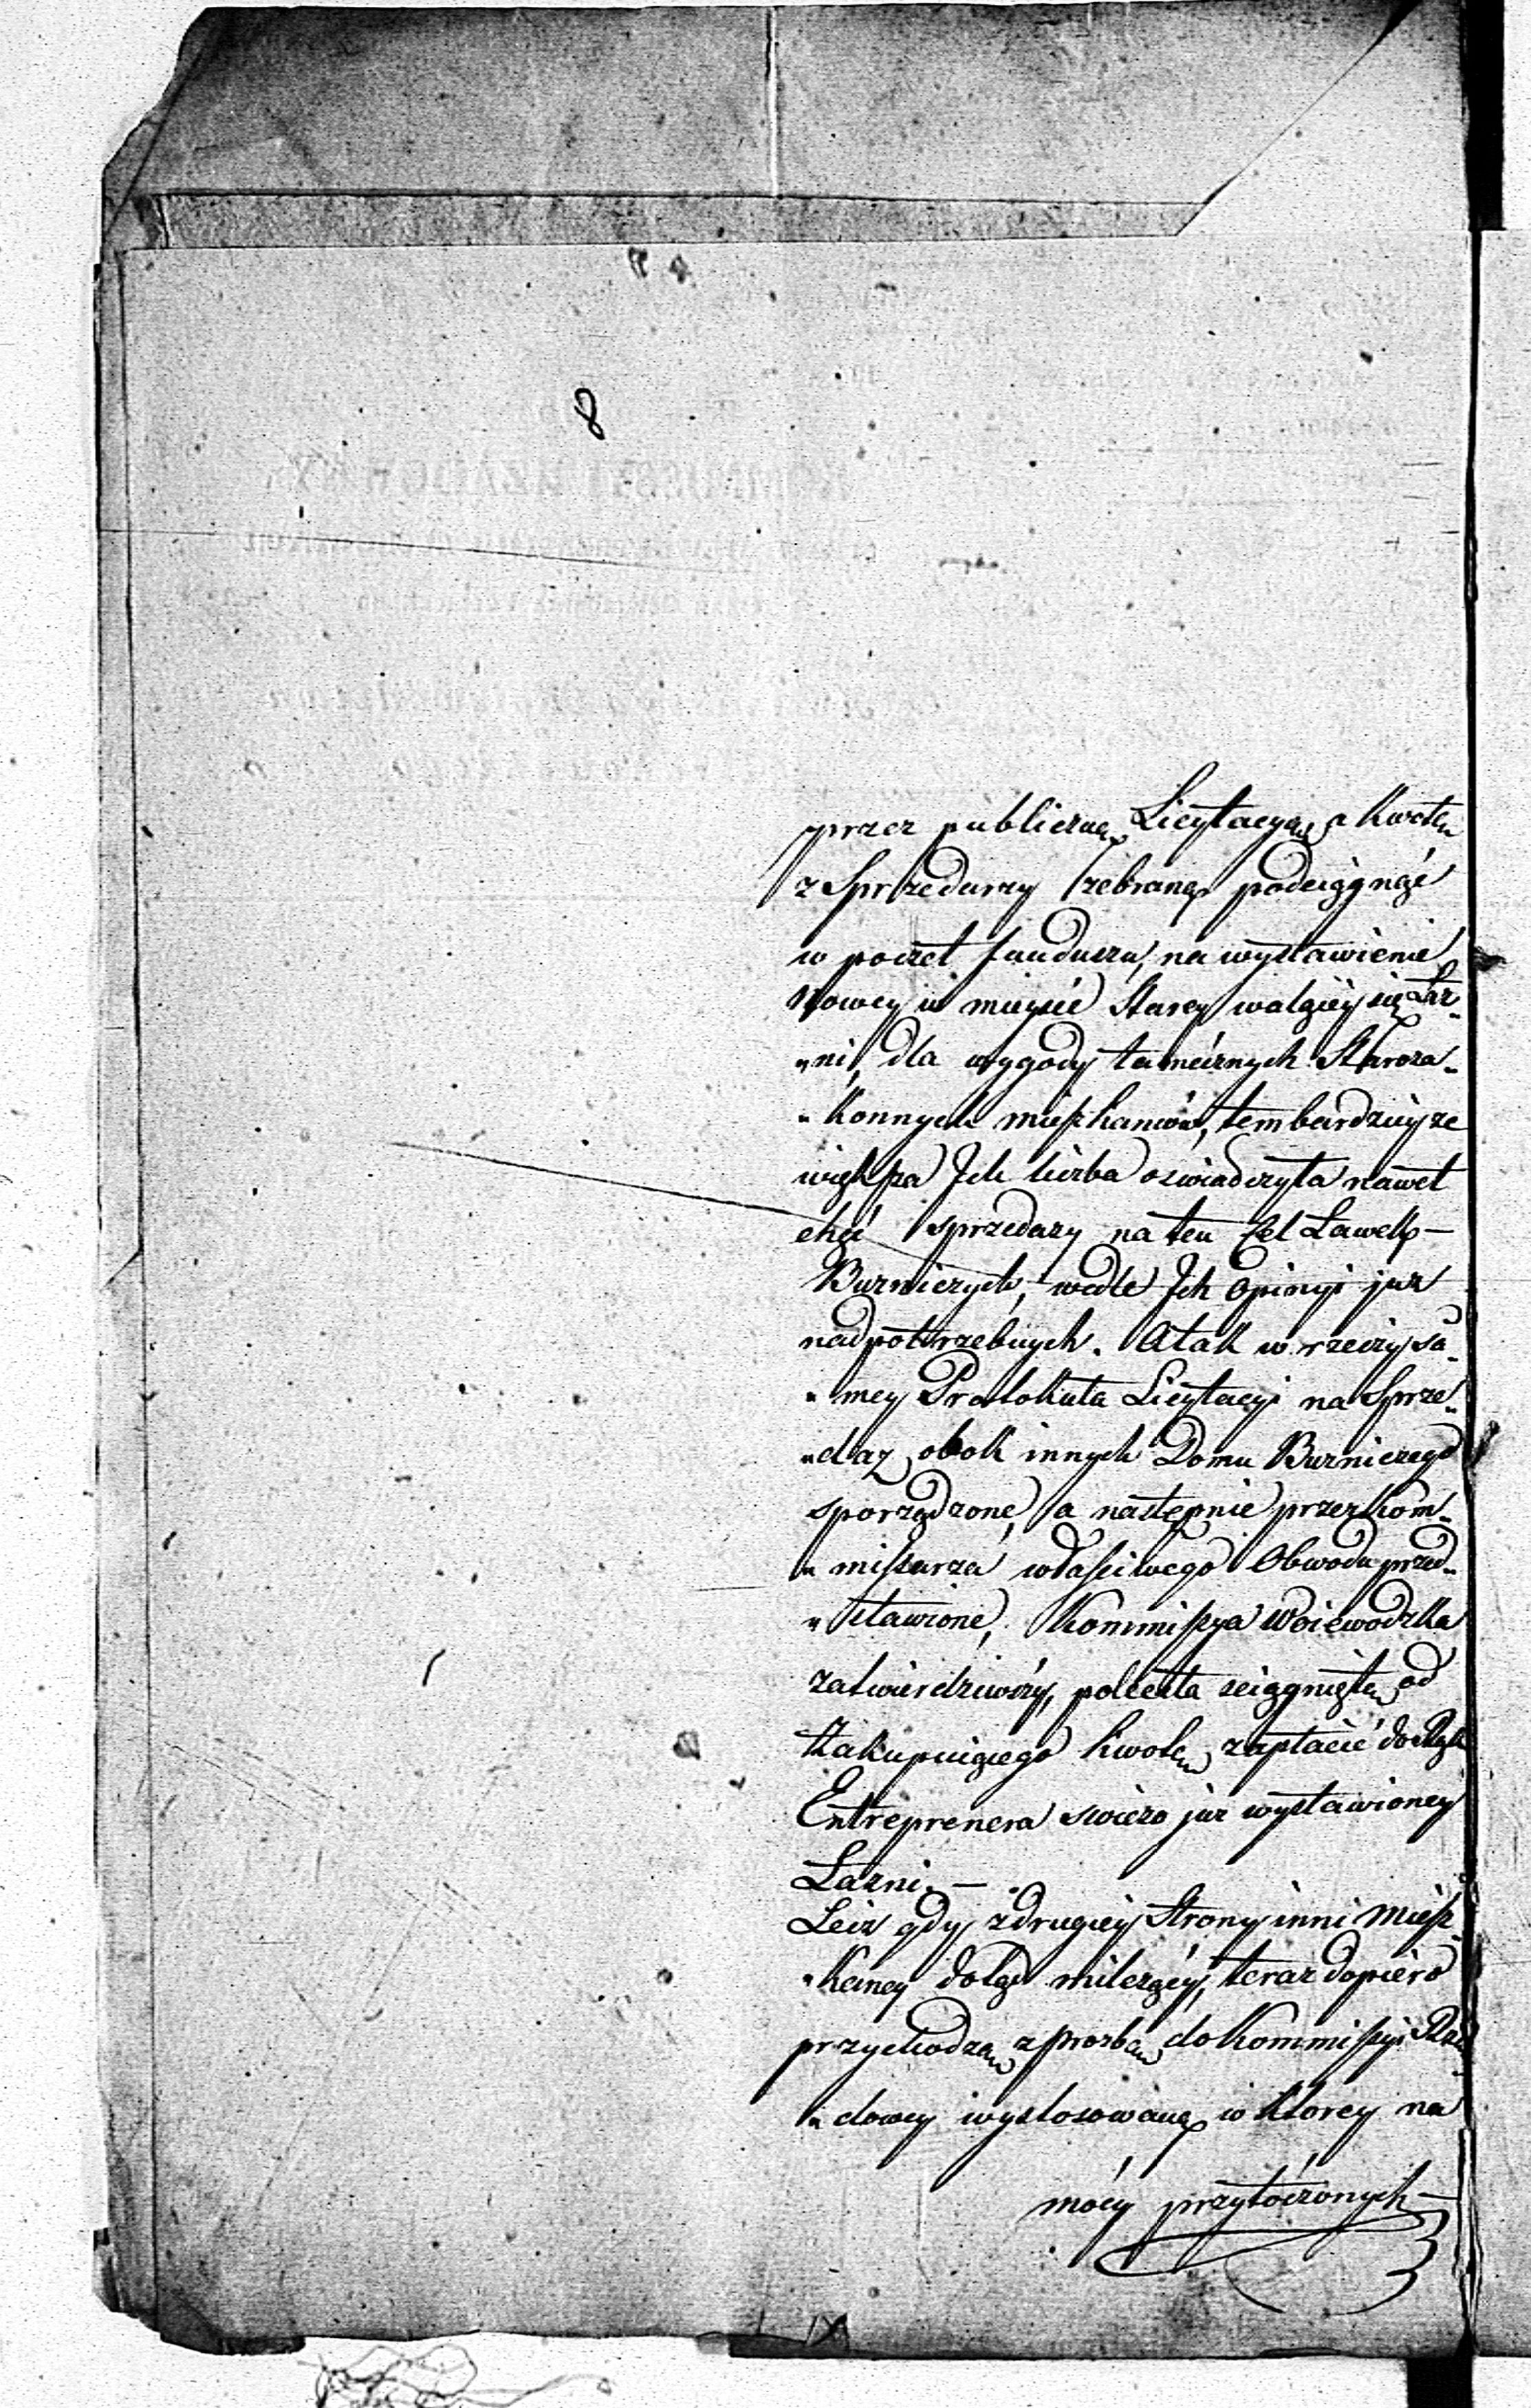 8
przez publiczną Licytacyą, a kwotę
z Sprzedarzy zebraną podciągnąć
w poczet funduszu, na wystawienie
Nowey w mieyscé Starey walącéy się Łaz-
„ni, dla wygody tamécznych Staroza-
„konnych mieszkańców, tembardziéy ze
większa Ich liczba oswiadczyła nawet
chęć sprzedazy na ten Cel Ławek –
Buzniczych, wedle Ich Opinyi juz
nadpotrzebnych. A tak w rzeczy sa-
„mey Protokuła Licytacyi na Sprze-
„daz obok innych Domu Bużniczego
sporządzone, a następnie przez Kom-
„missarza właściwego Obwodu przed-
„stawione, Kommissya Woiewodzka
zatwierdziwszy, poleciła sciągniętą od
Zakupuiącego kwotę zapłacić do Rąk
Entreprenera swiezo juz wystawioney
Łazni. –
Lecz gdy z drugiey Strony inni miesz-
„kancy dotąd milczący, teraz dopiéro
przychodzą z prozbą do Kommissyi Rzą
„dowey wystosowaną w ktorey na
mócy przytoczonych –